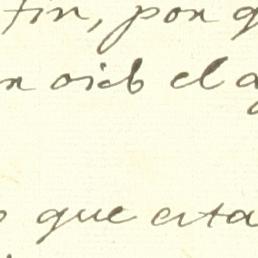 fin, por q
n oid el a
o que esta